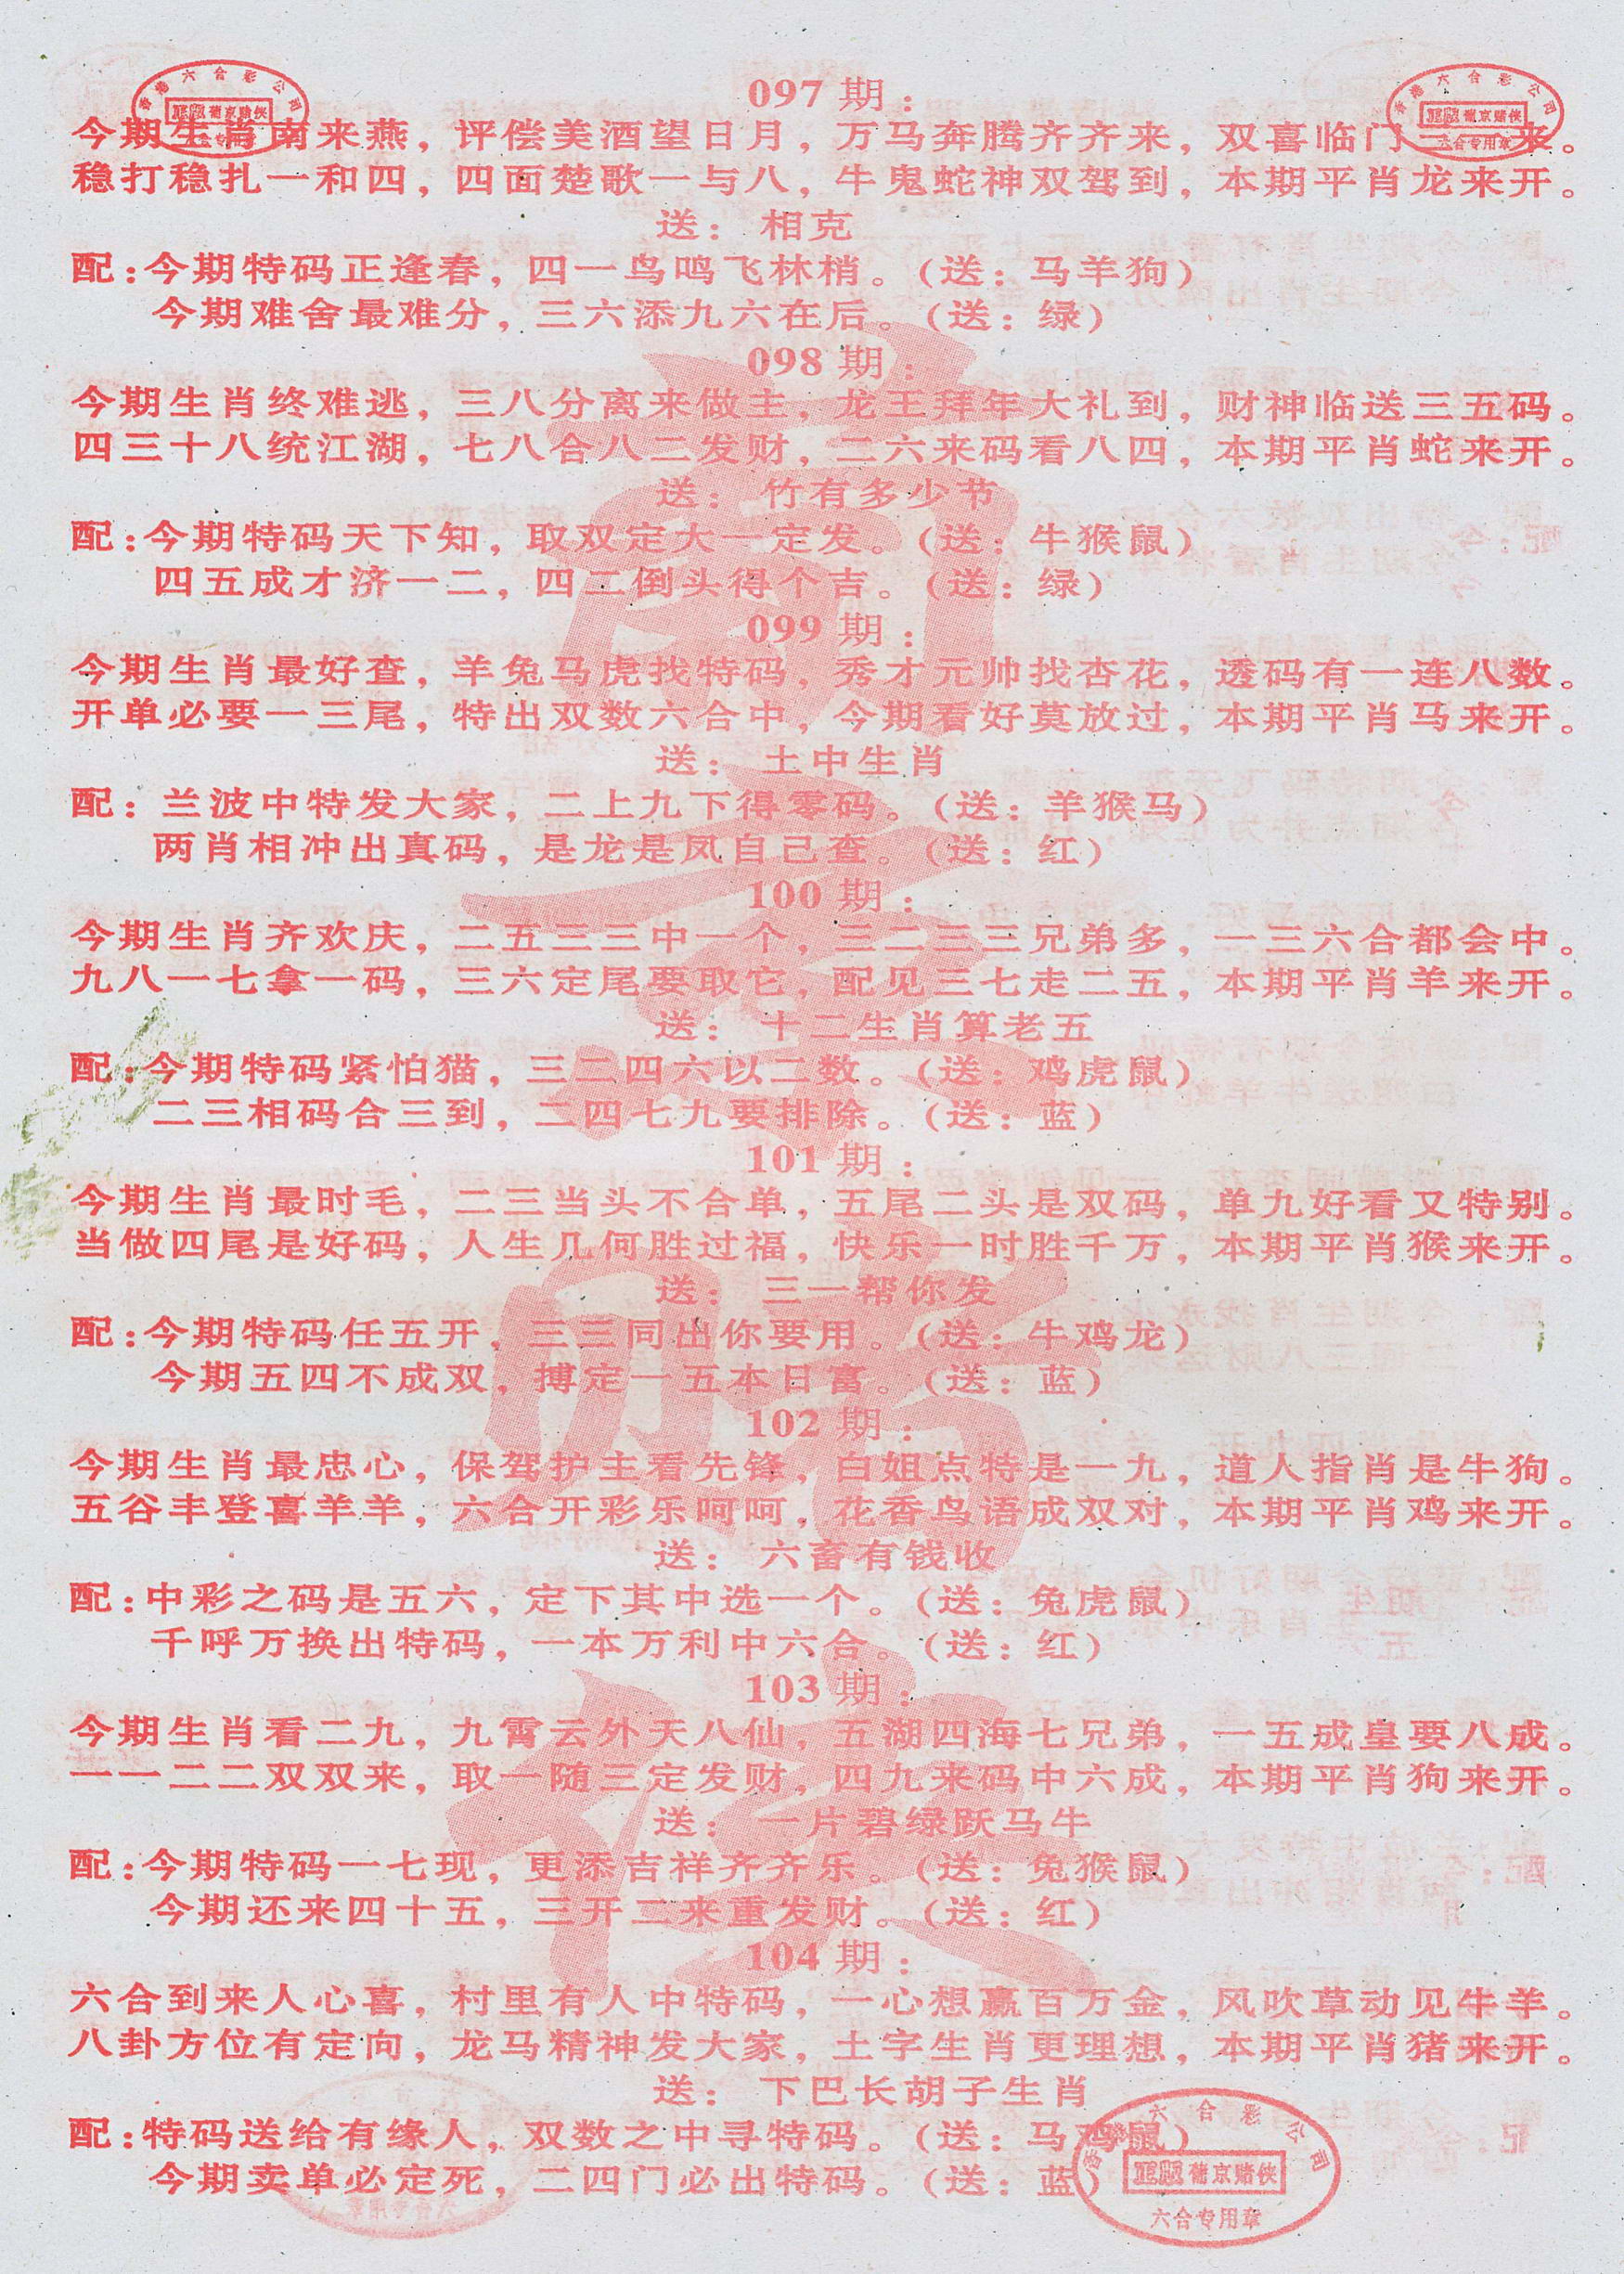 097 期：
今期生肖南来燕，评偿美酒望日月，万马奔腾齐齐来，双喜临门二一来。
稳打稳扎一和四，四面楚歌一与八，牛鬼蛇神双驾到，本期平肖龙来开。
送：相克
配：今期特码正逢春，四一鸟鸣飞林梢。（送：马羊狗）
今期难舍最难分，三六添九六在后。（送：绿）
098 期：
今期生肖终难逃，三八分离来做主，龙王拜年大礼到，财神临送三五码。
四三十八统江湖，七八合八二发财，二六来码看八四，本期平肖蛇来开。
送：竹有多少节
配：今期特码天下知，取双定大一定发。（送：牛猴鼠）
四五成才济一二，四二倒头得个吉。（送：绿）
099 期：
今期生肖最好查，羊兔马虎找特码，秀才元帅找杏花，透码有一连八数。
开单必要一三尾，特出双数六合中，今期看好莫放过，本期平肖马来开。
送：土中生肖
配：兰波中特发大家，二上九下得零码。（送：羊猴马）
两肖相冲出真码，是龙是凤自己查。（送：红）
100 期：
今期生肖齐欢庆，二五三三中一个，三二三三兄弟多，一三六合都会中。
九八一七拿一码，三六定尾要取它，配见三七走二五，本期平肖羊来开。
送：十二生肖算老五
配：今期特码紧怕猫，三二四六以二数。（送：鸡虎鼠）
二三相码合三到，二四七九要排除。（送：蓝）
101 期：
今期生肖最时毛，二三当头不合单，五尾二头是双码，单九好看又特别。
当做四尾是好码，人生几何胜过福，快乐一时胜千万，本期平肖猴来开。
送：三一帮你发
配：今期特码任五开，三三同出你要用。（送：牛鸡龙）
今期五四不成双，搏定一五本日富。（送：蓝）
102 期：
今期生肖最忠心，保驾护主看先锋，白姐点特是一九，道人指肖是牛狗。
五谷丰登喜羊羊，六合开彩乐呵呵，花香鸟语成双对，本期平肖鸡来开。
送：六畜有钱收
配：中彩之码是五六，定下其中选一个。（送：兔虎鼠）
千呼万换出特码，一本万利中六合。（送：红）
103 期：
今期生肖看二九，九霄云外天八仙，五湖四海七兄弟，一五成皇要八成。
一一二二双双来，取一随三定发财，四九来码中六成，本期平肖狗来开。
送：一片碧绿跃马牛
配：今期特码一七现，更添吉祥齐齐乐。（送：兔猴鼠）
今期还来四十五，三开二来重发财。（送：红）
104 期：
六合到来人心喜，村里有人中特码，一心想赢百万金，风吹草动见牛羊。
八卦方位有定向，龙马精神发大家，土字生肖更理想，本期平肖猪来开。
送：下巴长胡子生肖
配：特码送给有缘人，双数之中寻特码。（送：马鸡鼠）
今期卖单必定死，二四门必出特码。（送：蓝）
香港六合彩公司
正版 葡京赌侠
六合专用章